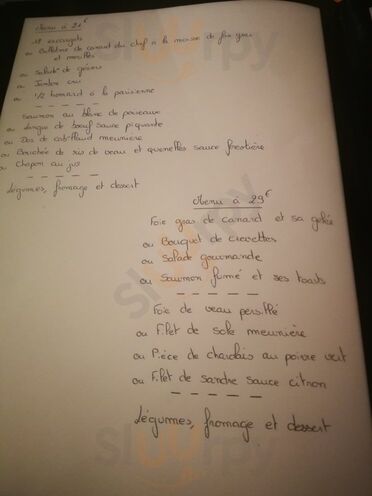 Menu à 21€
12 escargots
ou Ballotine de canard du chef à la mousse de foie gras
et morilles
ou Salade de gésiers
ou Jambon cru
ou 1/2 homard à la parisienne
Saumon au blanc de poireaux
ou Langue de boeuf sauce piquante
ou Dos de cabillaud meunière
ou Bouchée de ris de veau et quenelles sauce forestière
ou Chapon au jus
Légumes, fromage et dessert
Menu à 29€
Foie gras de canard et sa gelée
ou Bouquet de crevettes
ou Salade gourmande
ou Saumon fumé et ses toasts
Foie de veau persillé
ou Filet de sole meunière
ou Pièce de charolais au poivre vert
ou Filet de sandre sauce citron
Légumes, fromage et dessert